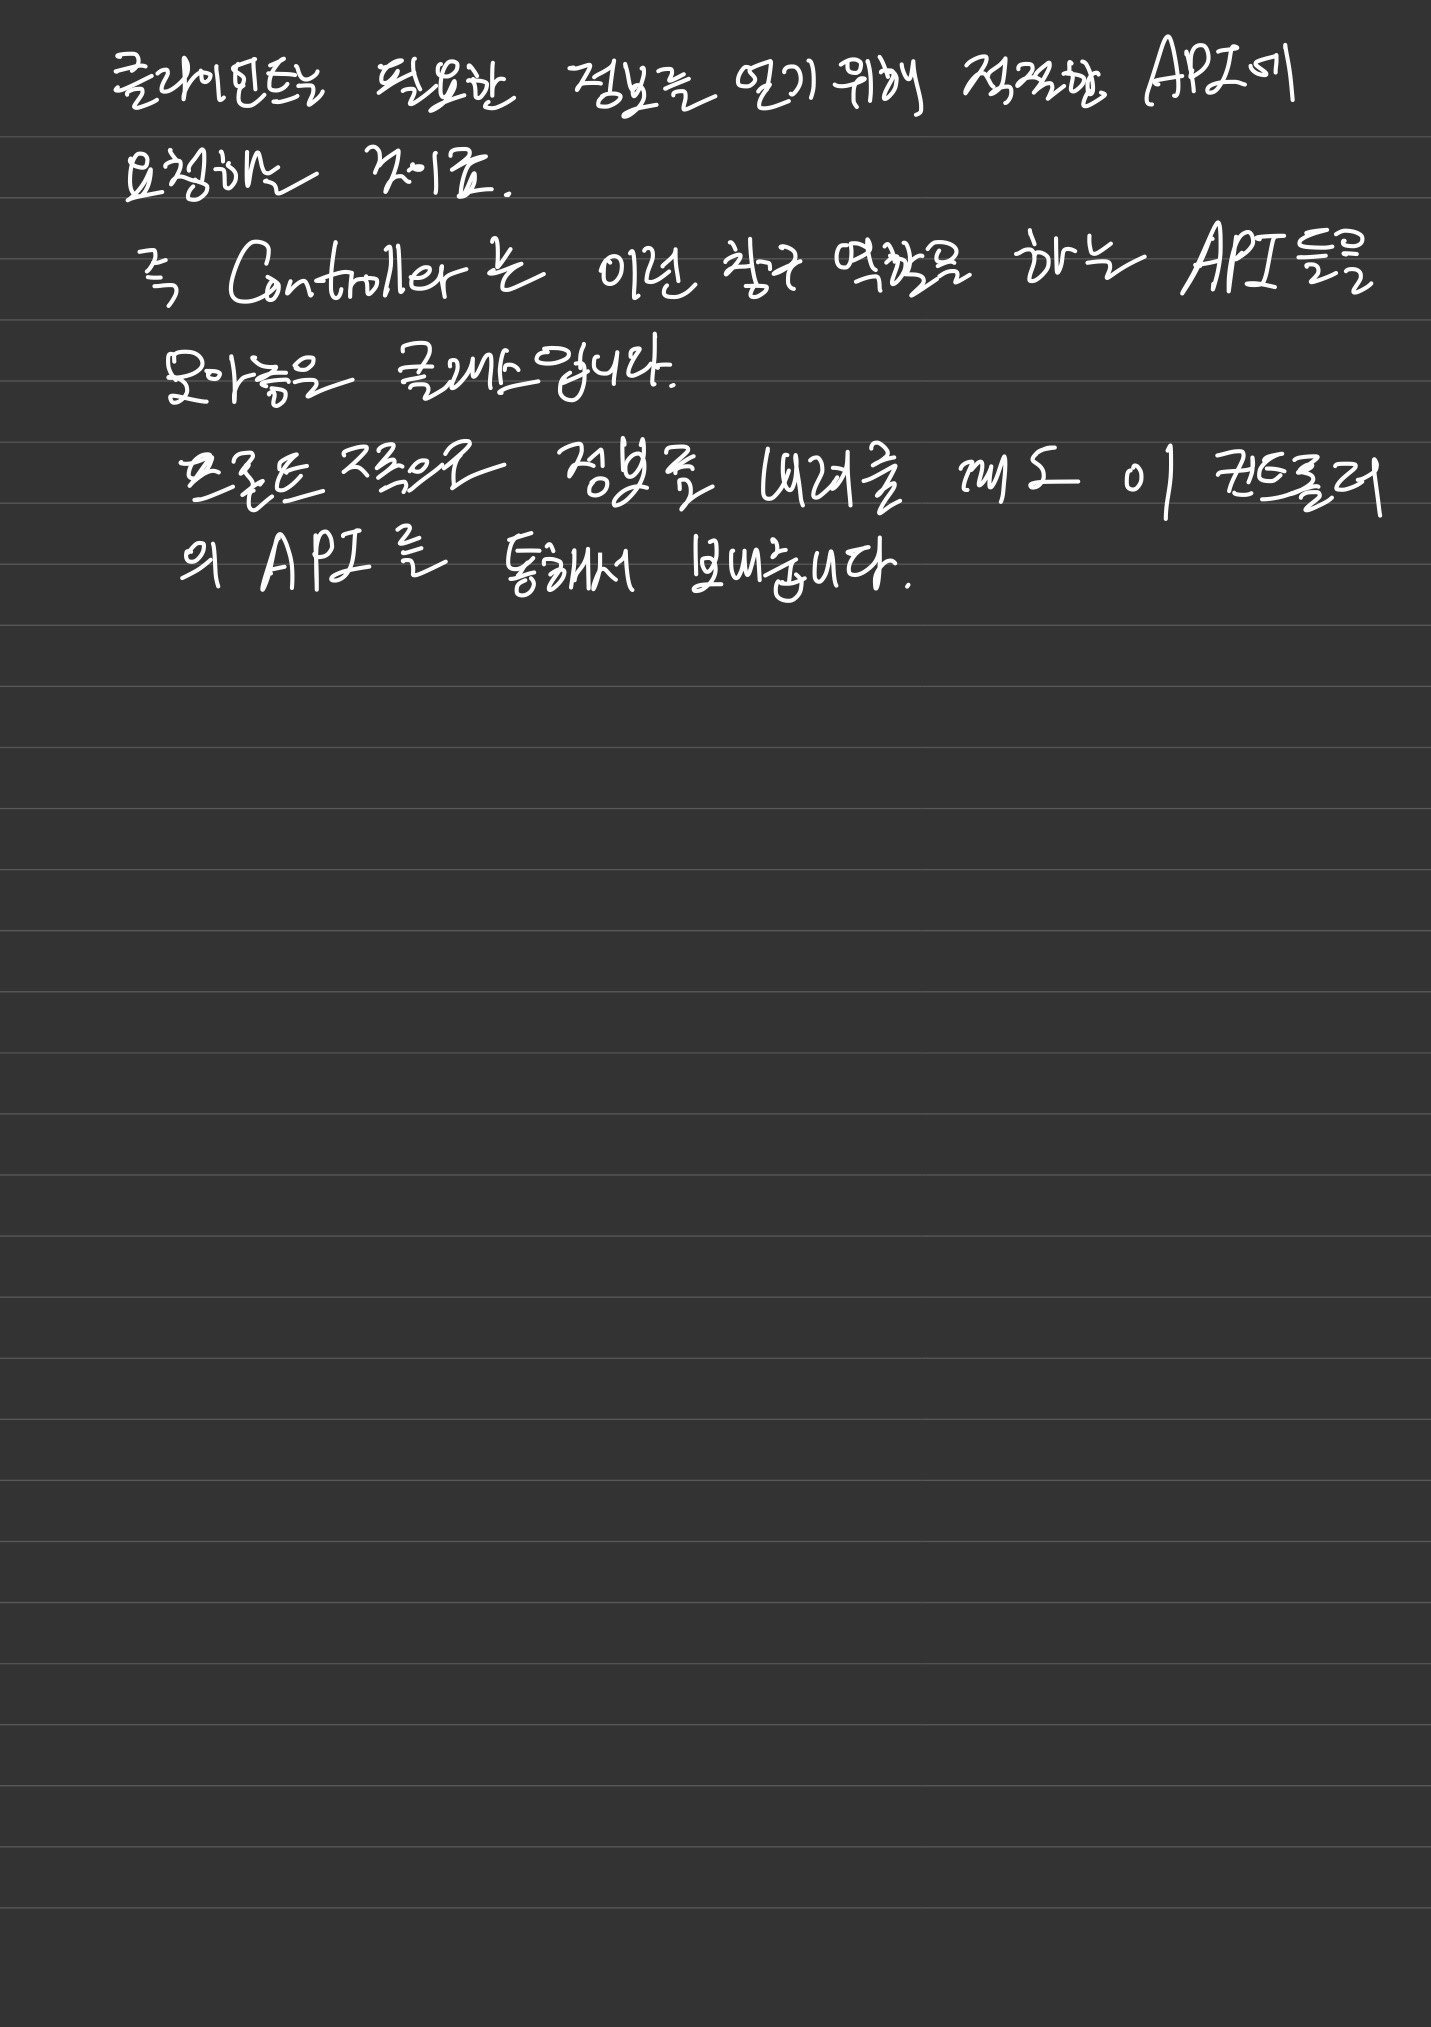 클라이언트는 필요한 정보를 얻기 위해 적절한 API에
요청하는 거죠.
즉 Controller는 이런 창구 역할을 하는 API들을
모아놓은 클래스입니다.
프론트 쪽으로 정보를 내려줄 때도 이 컨트롤러
의 API를 통해서 보내줍니다.